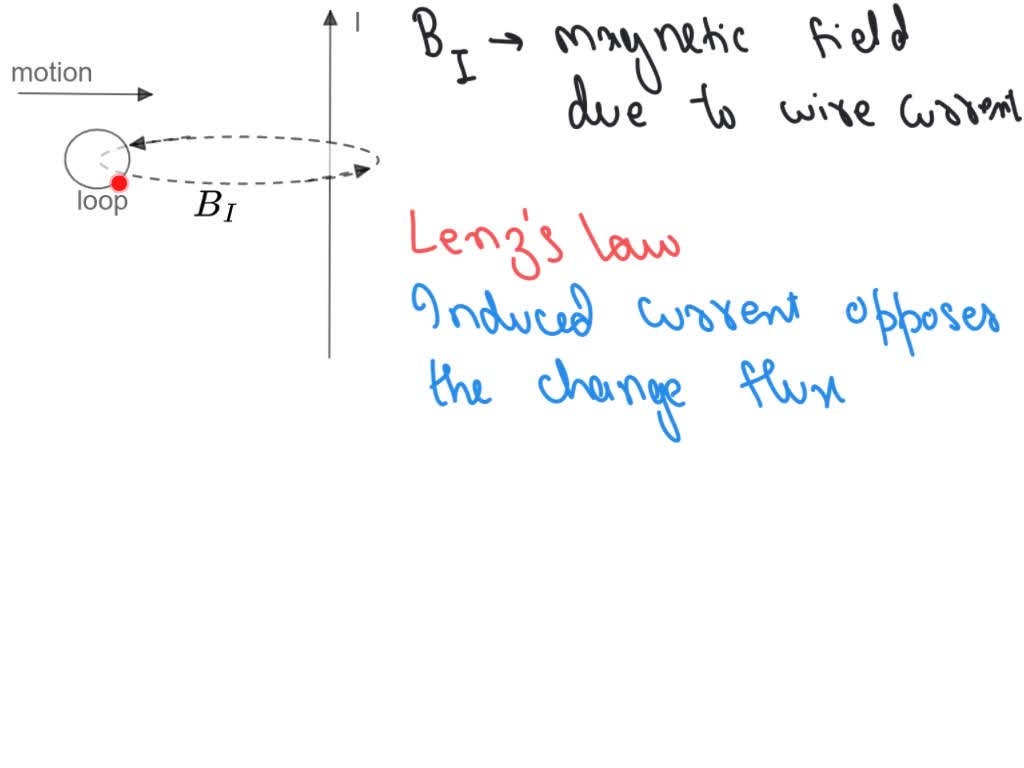 I
motion
loop
B_I
B_I → magnetic field
due to wire current
Lenz's law
Induced current opposes
the change flux